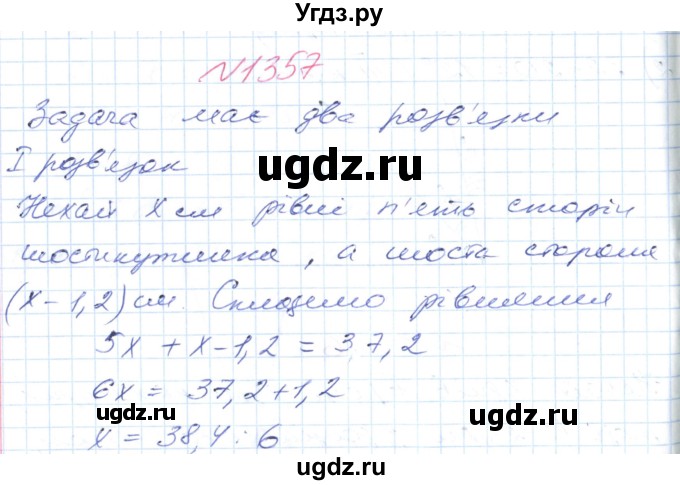 Угдз.ру
№1357
Задача має два розв'язки
I розв'язок
ugdz.ru
Нехай х см рівні п'ять сторін
шостикутника, а шоста сторона
ugdz.ru
(х-1,2) см. Складемо рівняння
5х + х-1,2 = 37,2
6х = 37,2+1,2
ugdz.ru ugdz.ru
х = 38,4 : 6
ugdz.ru